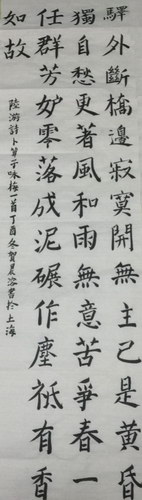 驛外斷橋邊寂寞開無主已是黃昏
獨自愁更著風和雨無意苦爭春一
任群芳妒零落成泥碾作塵祇有香
如故
陸游詩卜算子咏梅一首丁酉冬賀書於上海